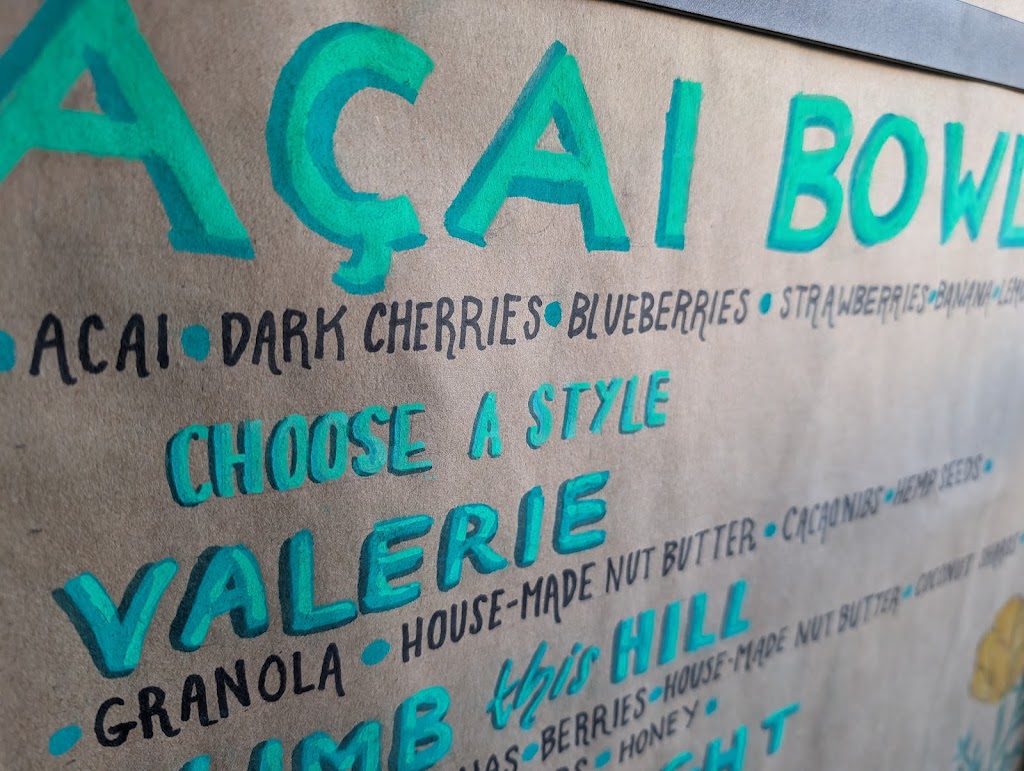 AÇAI BOWL
• ACAI • DARK CHERRIES • BLUEBERRIES • STRAWBERRIES • BANANA • LEM
CHOOSE A STYLE
VALERIE
• GRANOLA • HOUSE-MADE NUT BUTTER • CACAO NIBS • HEMP SEEDS •
this HILL
BERRIES • HOUSE-MADE NUT BUTTER • COCONUT
• HONEY •